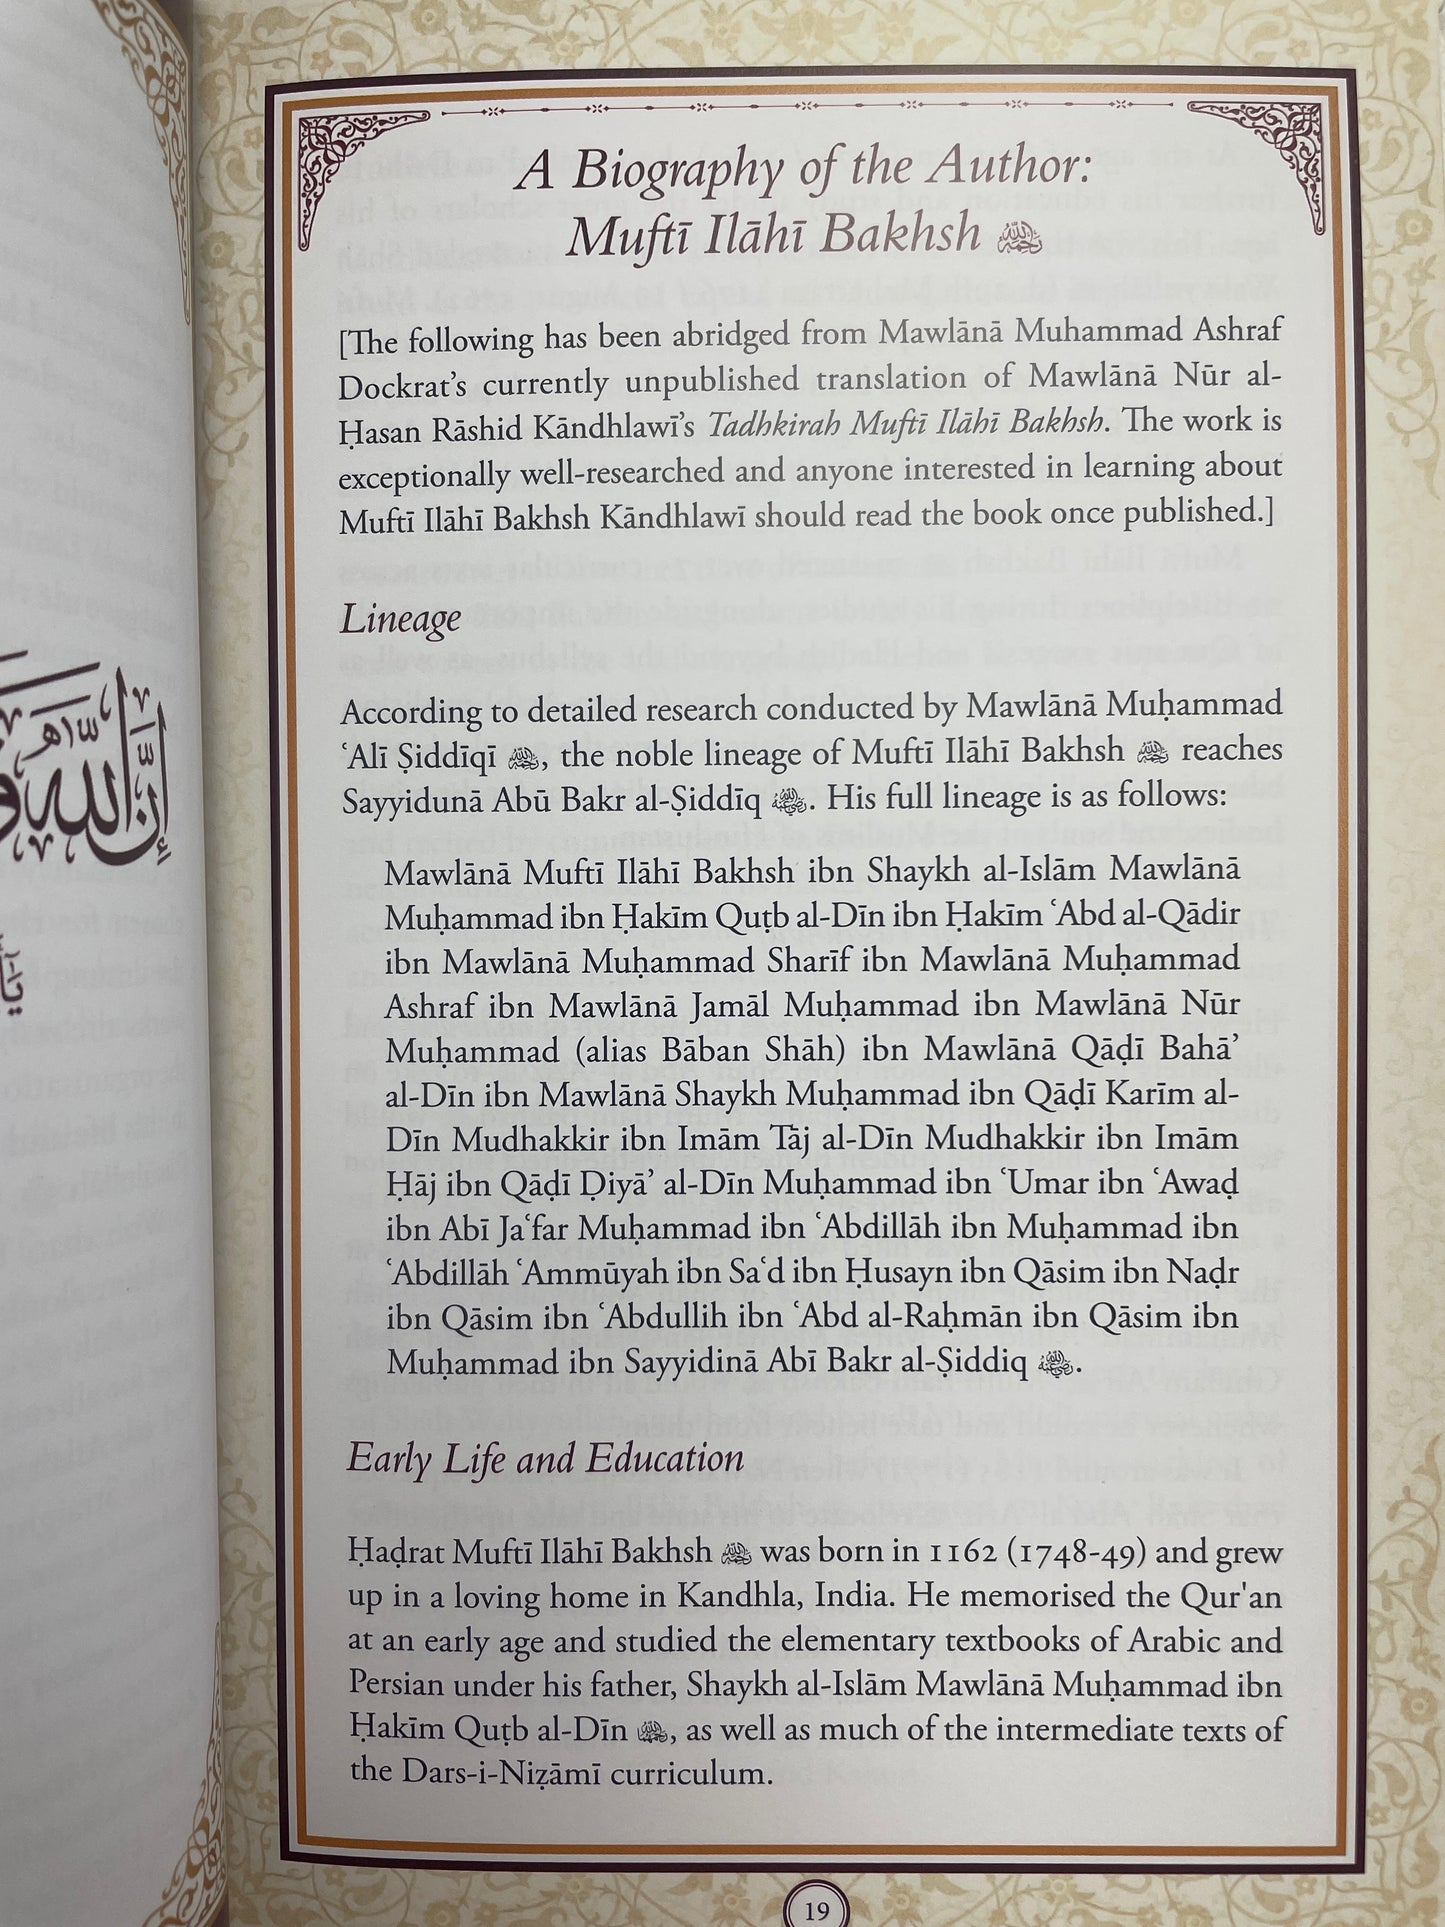 إِنَّ اللّٰهَ
A Biography of the Author:
Muftī Ilāhī Bakhsh رحمه الله
[The following has been abridged from Mawlānā Muhammad Ashraf
Dockrat’s currently unpublished translation of Mawlānā Nūr al-
Ḥasan Rāshid Kāndhlawī’s Tadhkirah Muftī Ilāhī Bakhsh. The work is
exceptionally well-researched and anyone interested in learning about
Muftī Ilāhī Bakhsh Kāndhlawī should read the book once published.]
Lineage
According to detailed research conducted by Mawlānā Muḥammad
ʿAlī Ṣiddīqī رحمه الله, the noble lineage of Muftī Ilāhī Bakhsh رحمه الله reaches
Sayyidunā Abū Bakr al-Ṣiddīq رضي الله عنه. His full lineage is as follows:
Mawlānā Muftī Ilāhī Bakhsh ibn Shaykh al-Islām Mawlānā
Muḥammad ibn Ḥakīm Quṭb al-Dīn ibn Ḥakīm ʿAbd al-Qādir
ibn Mawlānā Muḥammad Sharīf ibn Mawlānā Muḥammad
Ashraf ibn Mawlānā Jamāl Muḥammad ibn Mawlānā Nūr
Muḥammad (alias Bāban Shāh) ibn Mawlānā Qāḍī Bahā’
al-Dīn ibn Mawlānā Shaykh Muḥammad ibn Qāḍī Karīm al-
Dīn Mudhakkir ibn Imām Tāj al-Dīn Mudhakkir ibn Imām
Ḥāj ibn Qāḍī Ḍiyā’ al-Dīn Muḥammad ibn ʿUmar ibn ʿAwaḍ
ibn Abī Jaʿfar Muḥammad ibn ʿAbdillāh ibn Muḥammad ibn
ʿAbdillāh ʿAmmūyah ibn Saʿd ibn Ḥusayn ibn Qāsim ibn Naḍr
ibn Qāsim ibn ʿAbdullih ibn ʿAbd al-Raḥmān ibn Qāsim ibn
Muḥammad ibn Sayyidinā Abī Bakr al-Ṣiddiq رضي الله عنه.
Early Life and Education
Ḥaḍrat Muftī Ilāhī Bakhsh رحمه الله was born in 1162 (1748-49) and grew
up in a loving home in Kandhla, India. He memorised the Qur'an
at an early age and studied the elementary textbooks of Arabic and
Persian under his father, Shaykh al-Islām Mawlānā Muḥammad ibn
Ḥakīm Quṭb al-Dīn رحمه الله, as well as much of the intermediate texts of
the Dars-i-Niẓāmī curriculum.
19